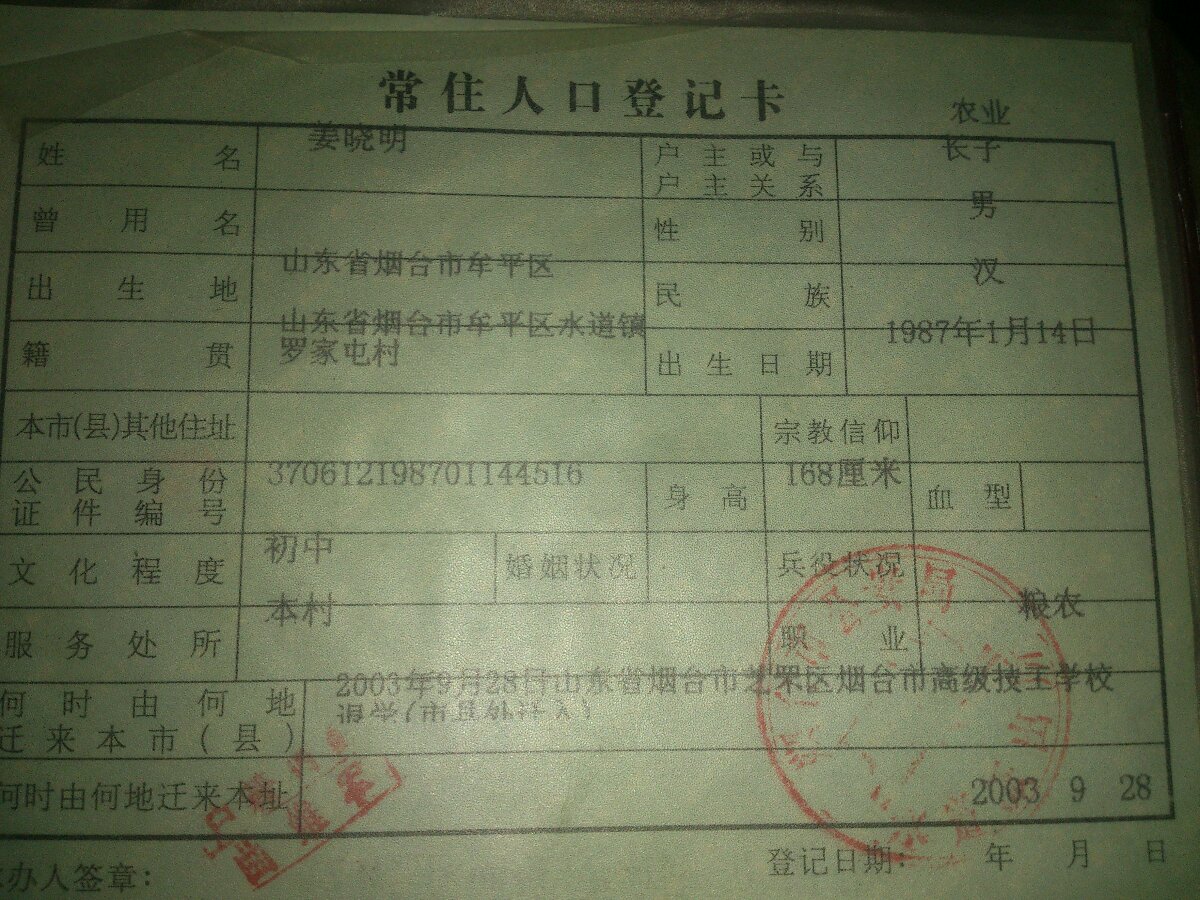 常住人口登记卡
农业
姓名 姜晓明 户主或与户主关系 长子
曾用名 性别 男
出生地 山东省烟台市牟平区 民族 汉
籍贯 山东省烟台市牟平区水道镇罗家屯村 出生日期 1987年1月14日
本市(县)其他住址 宗教信仰
公民身份证件编号 370612198701144516 身高 168厘米 血型
文化程度 初中 婚姻状况 兵役状况
服务处所 本村 职业 粮农
何时由何地迁来本市(县) 2003年9月28日山东省烟台市芝罘区烟台市高级技工学校
退学(市县外迁入)
何时由何地迁来本址
2003 9 28
办人签章: 登记日期: 年 月 日